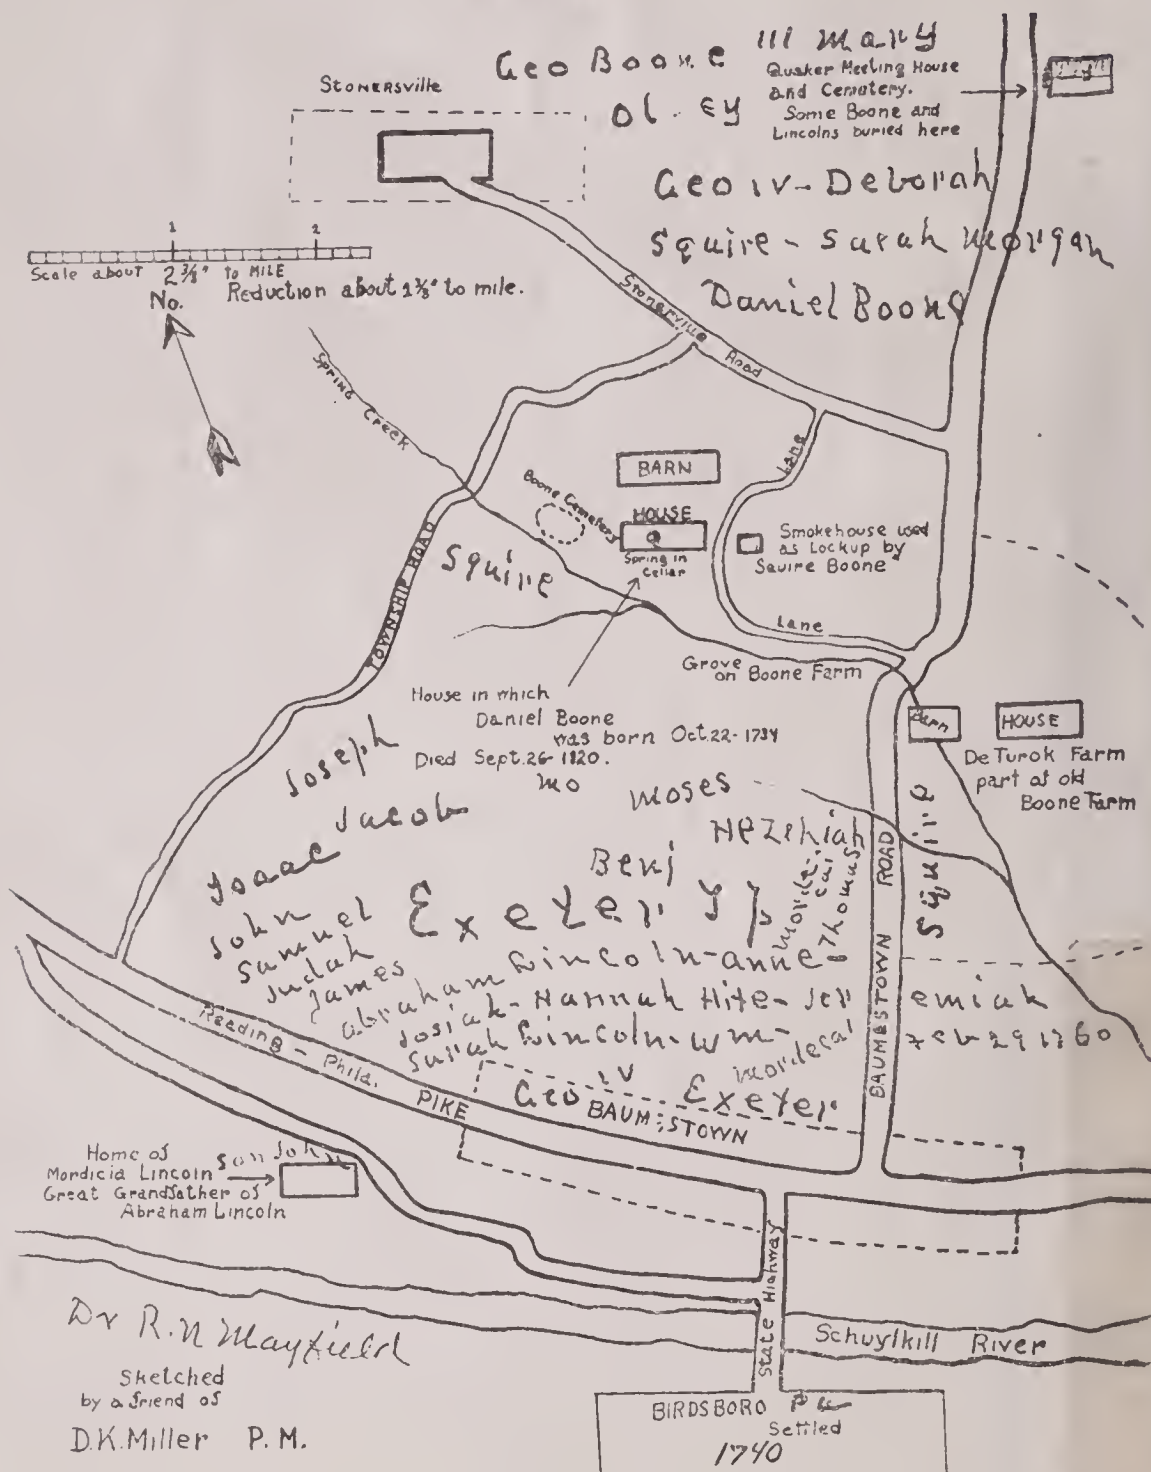 Geo Boone III Mary
Stonersville
Ol. ey
Quaker Meeting House
and Cemetery.
Some Boone and
Lincolns buried here
Geo IV - Deborah
Squire - Sarah Morgan
Daniel Boone
1 2
Scale about 2 3/8" to MILE
Reduction about 1 3/8" to mile.
No.
Stonerville Road
Spring Creek
Lane
BARN
Boone Cemetery
HOUSE
Spring in
Cellar
Smokehouse used
as Lockup by
Squire Boone
TOWNSHIP ROAD
Squire
Lane
Grove
on Boone Farm
House in which
Daniel Boone
was born Oct. 22 - 1734
Died Sept. 26 - 1820.
Mo
Barn
HOUSE
De Turok Farm
part of old
Boone Farm
Joseph
Jacob
Isaac
Moses
Hezekiah
Benj
Morde-
cai
Thomas
Squire
John
Samuel
Judah
James
Exeter Tp
Abraham Lincoln - Anne -
Josiah - Hannah Hite - Jer emiah
Sarah Lincoln - Wm -
Mordecai
Feb 29 1760
BAUMESTOWN ROAD
Reading - Phila. PIKE
Geo IV Exeter
BAUMSTOWN
Home of
Mordicia Lincoln
Great Grandfather of
Abraham Lincoln
Son John
State Highway
Schuylkill River
Dr R. N Mayfield
Sketched
by a friend of
D.K. Miller P. M.
BIRDSBORO Pa
Settled
1740